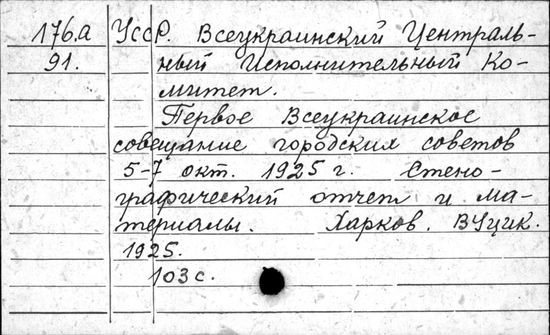 176.а УССР. Всеукраинский Централь-
91. ный Исполнительный Ко-
митет.
Первое Всеукраинское
совещание городских советов
5-7 окт. 1925 г. Стено-
графический отчет и ма-
териалы. Харков. ВУЦИК.
1925.
103 с.